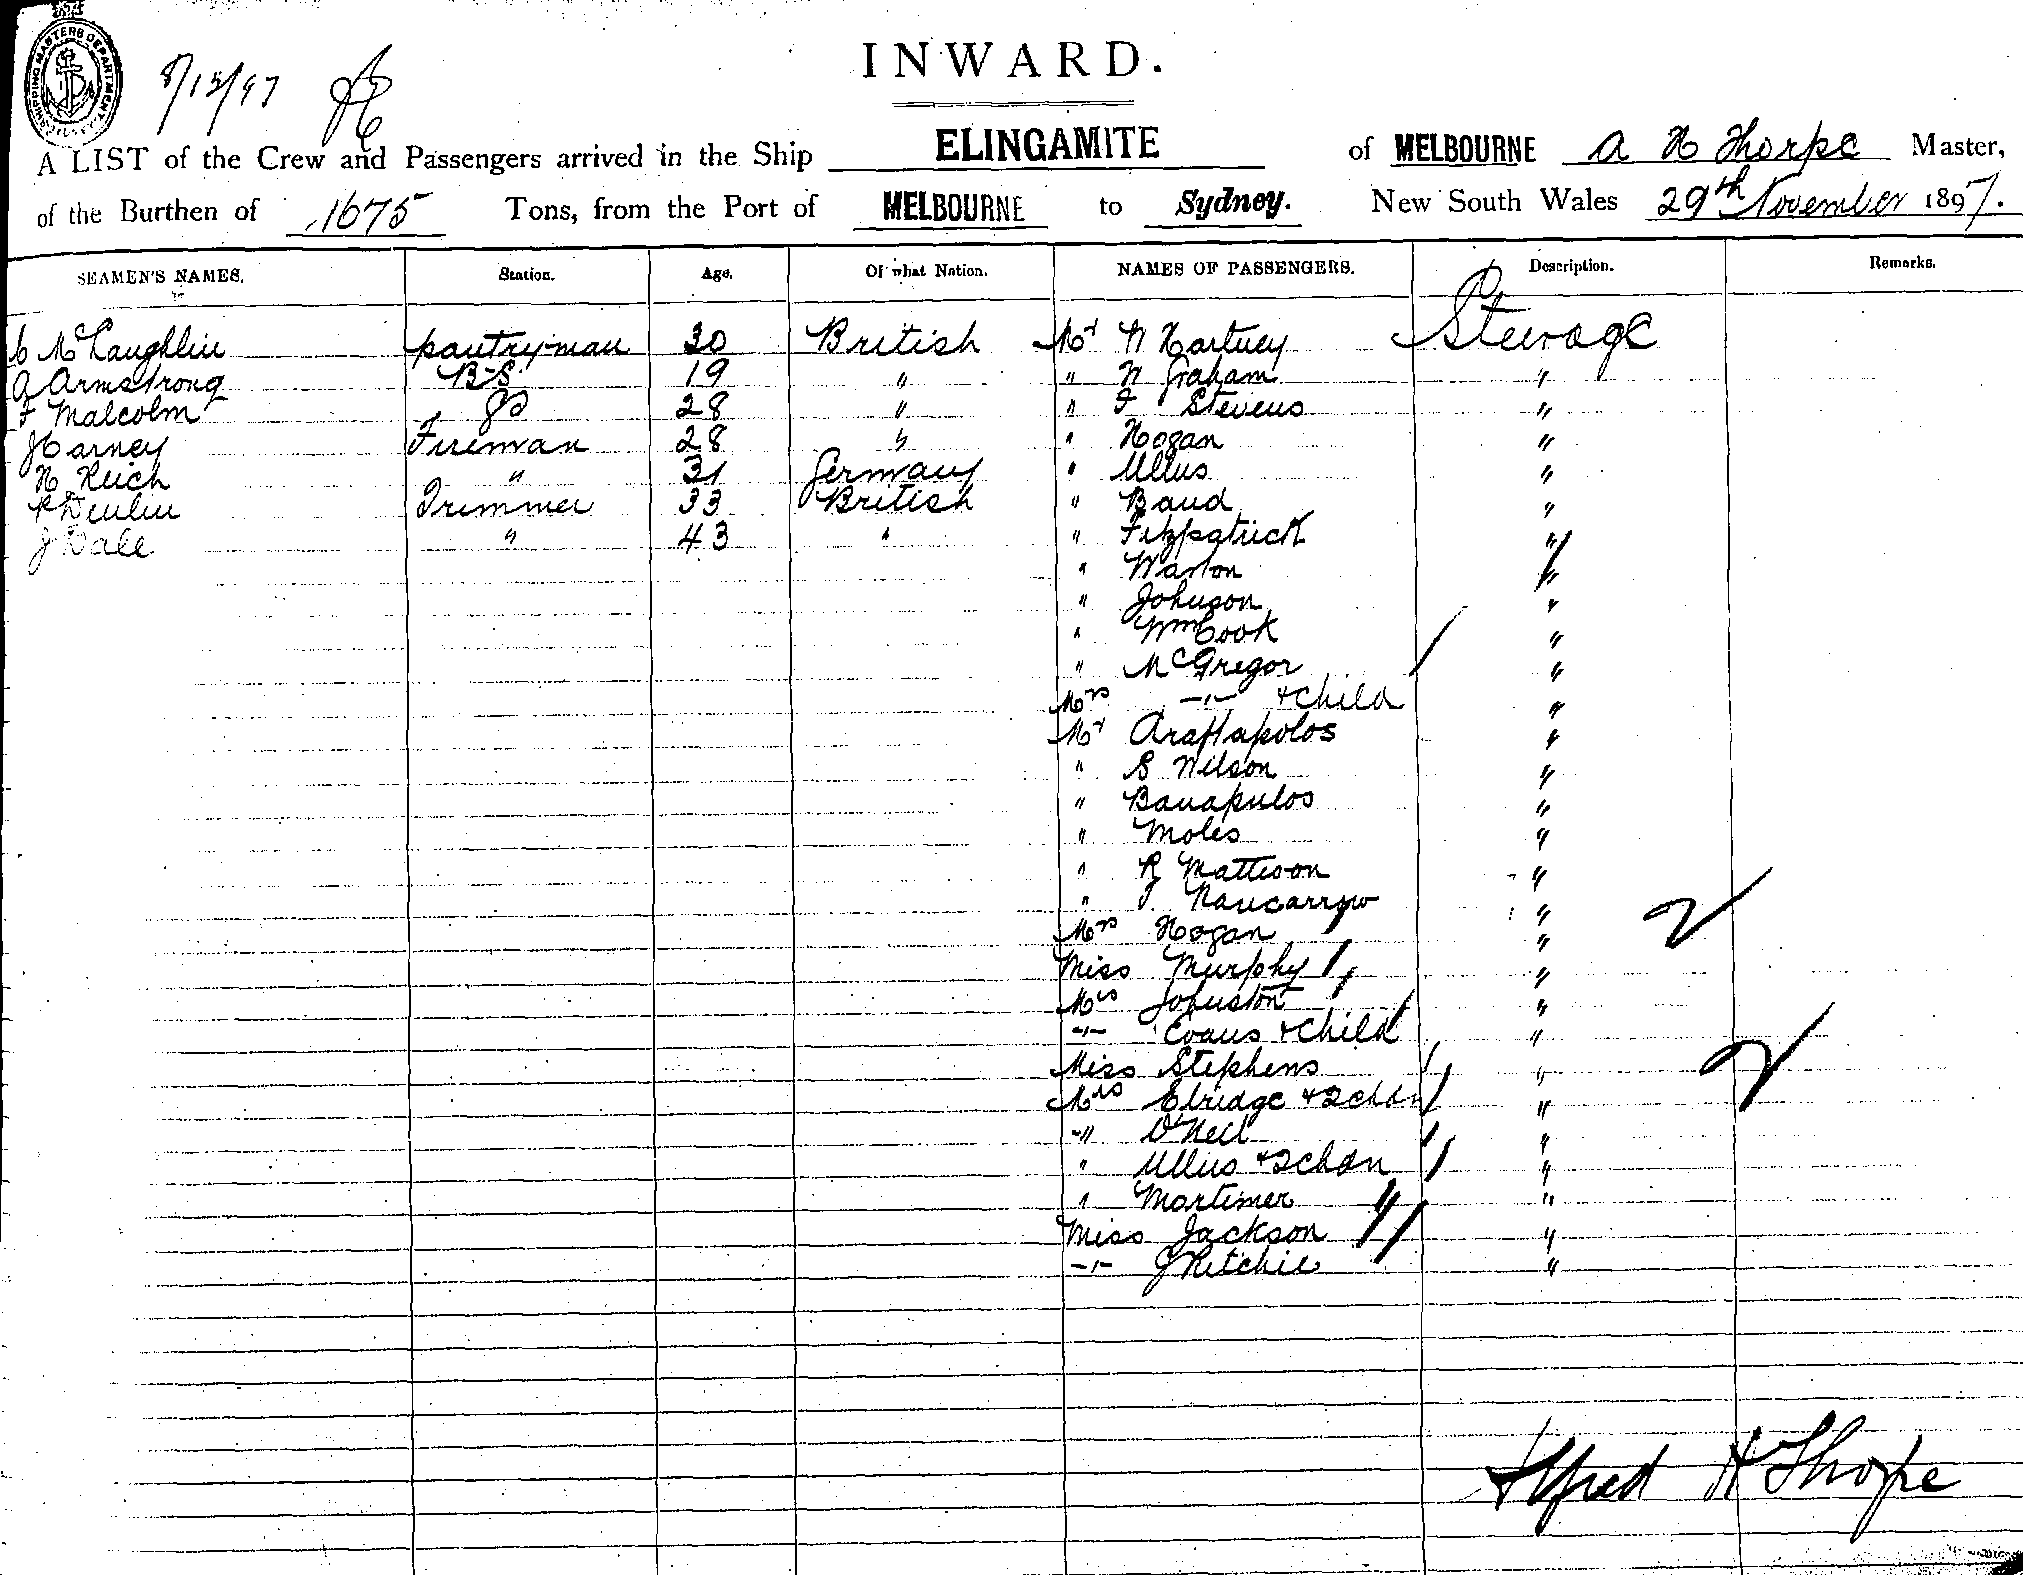 SHIPPING MASTERS DEPARTMENT
INWARD.
A LIST of the Crew and Passengers arrived in the Ship ELINGAMITE of MELBOURNE A H Thorpe Master,
of the Burthen of 1675 Tons, from the Port of MELBOURNE to Sydney. New South Wales 29th November 1897.
SEAMEN'S NAMES. Station. Age. Of what Nation. NAMES OF PASSENGERS. Description. Remarks.
C McLaughlin pantryman 30 British Mr W Hartney Steerage
A Armstrong B.S. 19 " " W Graham "
F Malcolm Do 28 " " F Stevens "
J Carney Fireman 28 " " Hogan "
H Reich " 31 Germany " Ullus "
P Devlin Trimmer 33 British " Baud "
J Dale " 43 " " Fitzpatrick "
" Warton "
" Johnson "
" Wm Cook "
" McGregor "
Mrs -"- + Child "
Mr "
" S Wilson "
" Banapulos "
" Moles "
" R Mattison "
" J Nancarrow "
Mrs Hogan "
Miss Murphy "
Mrs Johnston "
-"- Evans + Child "
Miss Stephens "
Mrs Elridge + 2 chdn "
-"- O'Neil "
" Ullus + 2 chdn "
" Mortimer "
Miss Jackson "
-"- J Ritchie "
Alfred H Thorpe